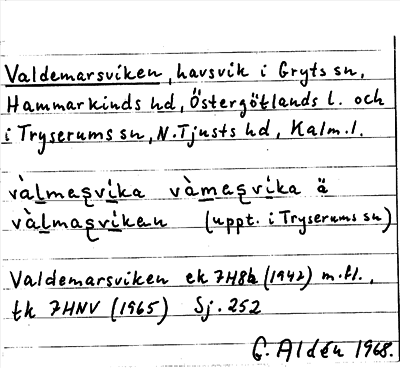 Valdemarsviken, havsvik i Gryts sn,
Hammarkinds hd, Östergötlands l. och
i Tryserums sn, N. Tjusts hd, Kalm. l.
vàlmasvika vàmesvika ä
vàlmasviken (uppt. i Tryserums sn)
Valdemarsviken ek 7H8h (1942) m. fl.,
tk 7HNV (1965) Sj. 252
G. Aldén 1968.